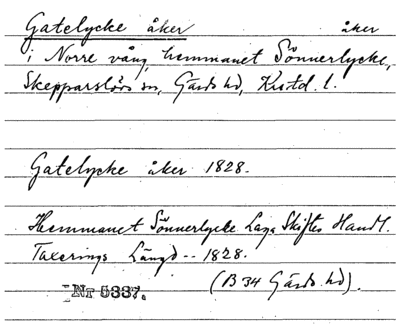 Gatelycke åker åker
i Norre vång, hemmanet Sönnerlycke,
Skepparslövs sn, Gärds hd, Krstd. l.
Gatelycke åker 1828.
Hemmanet Sönnerlycke Laga Skiftes Handl.
Taxerings Längd -- 1828.
(B 34 Gärds hd).
Nr 5337.